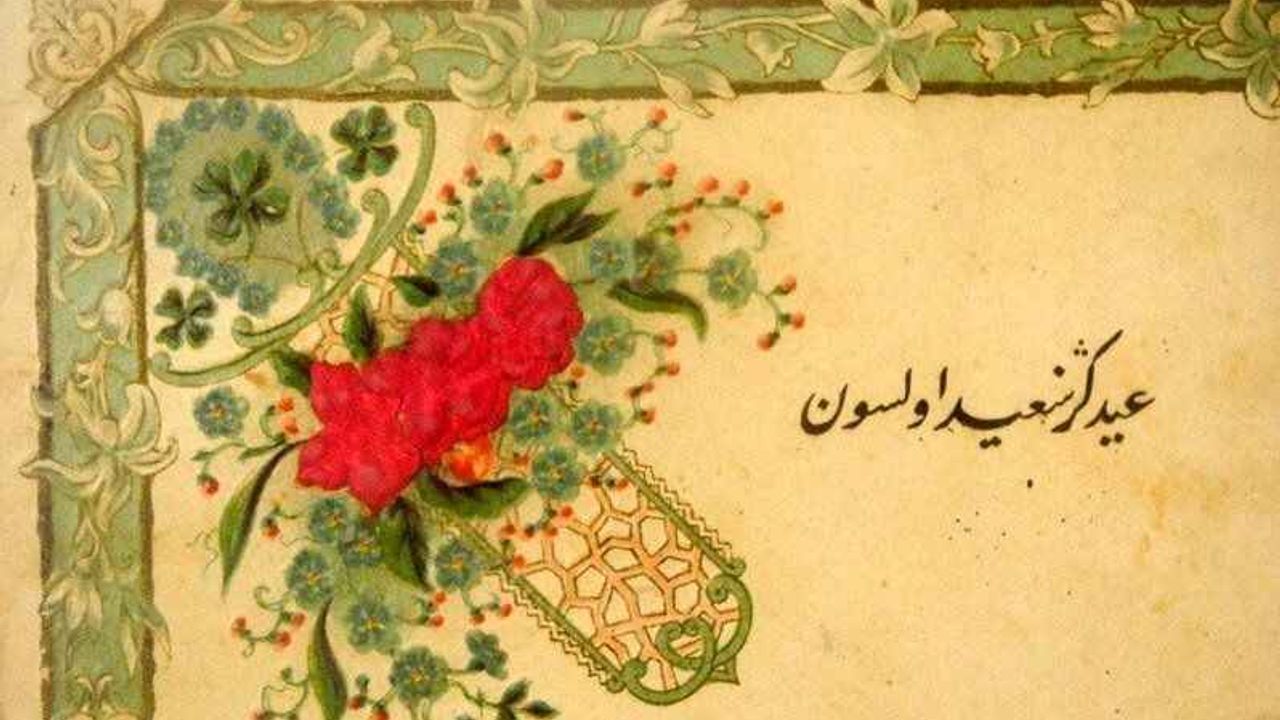 عيدڭز سعيد اولسون